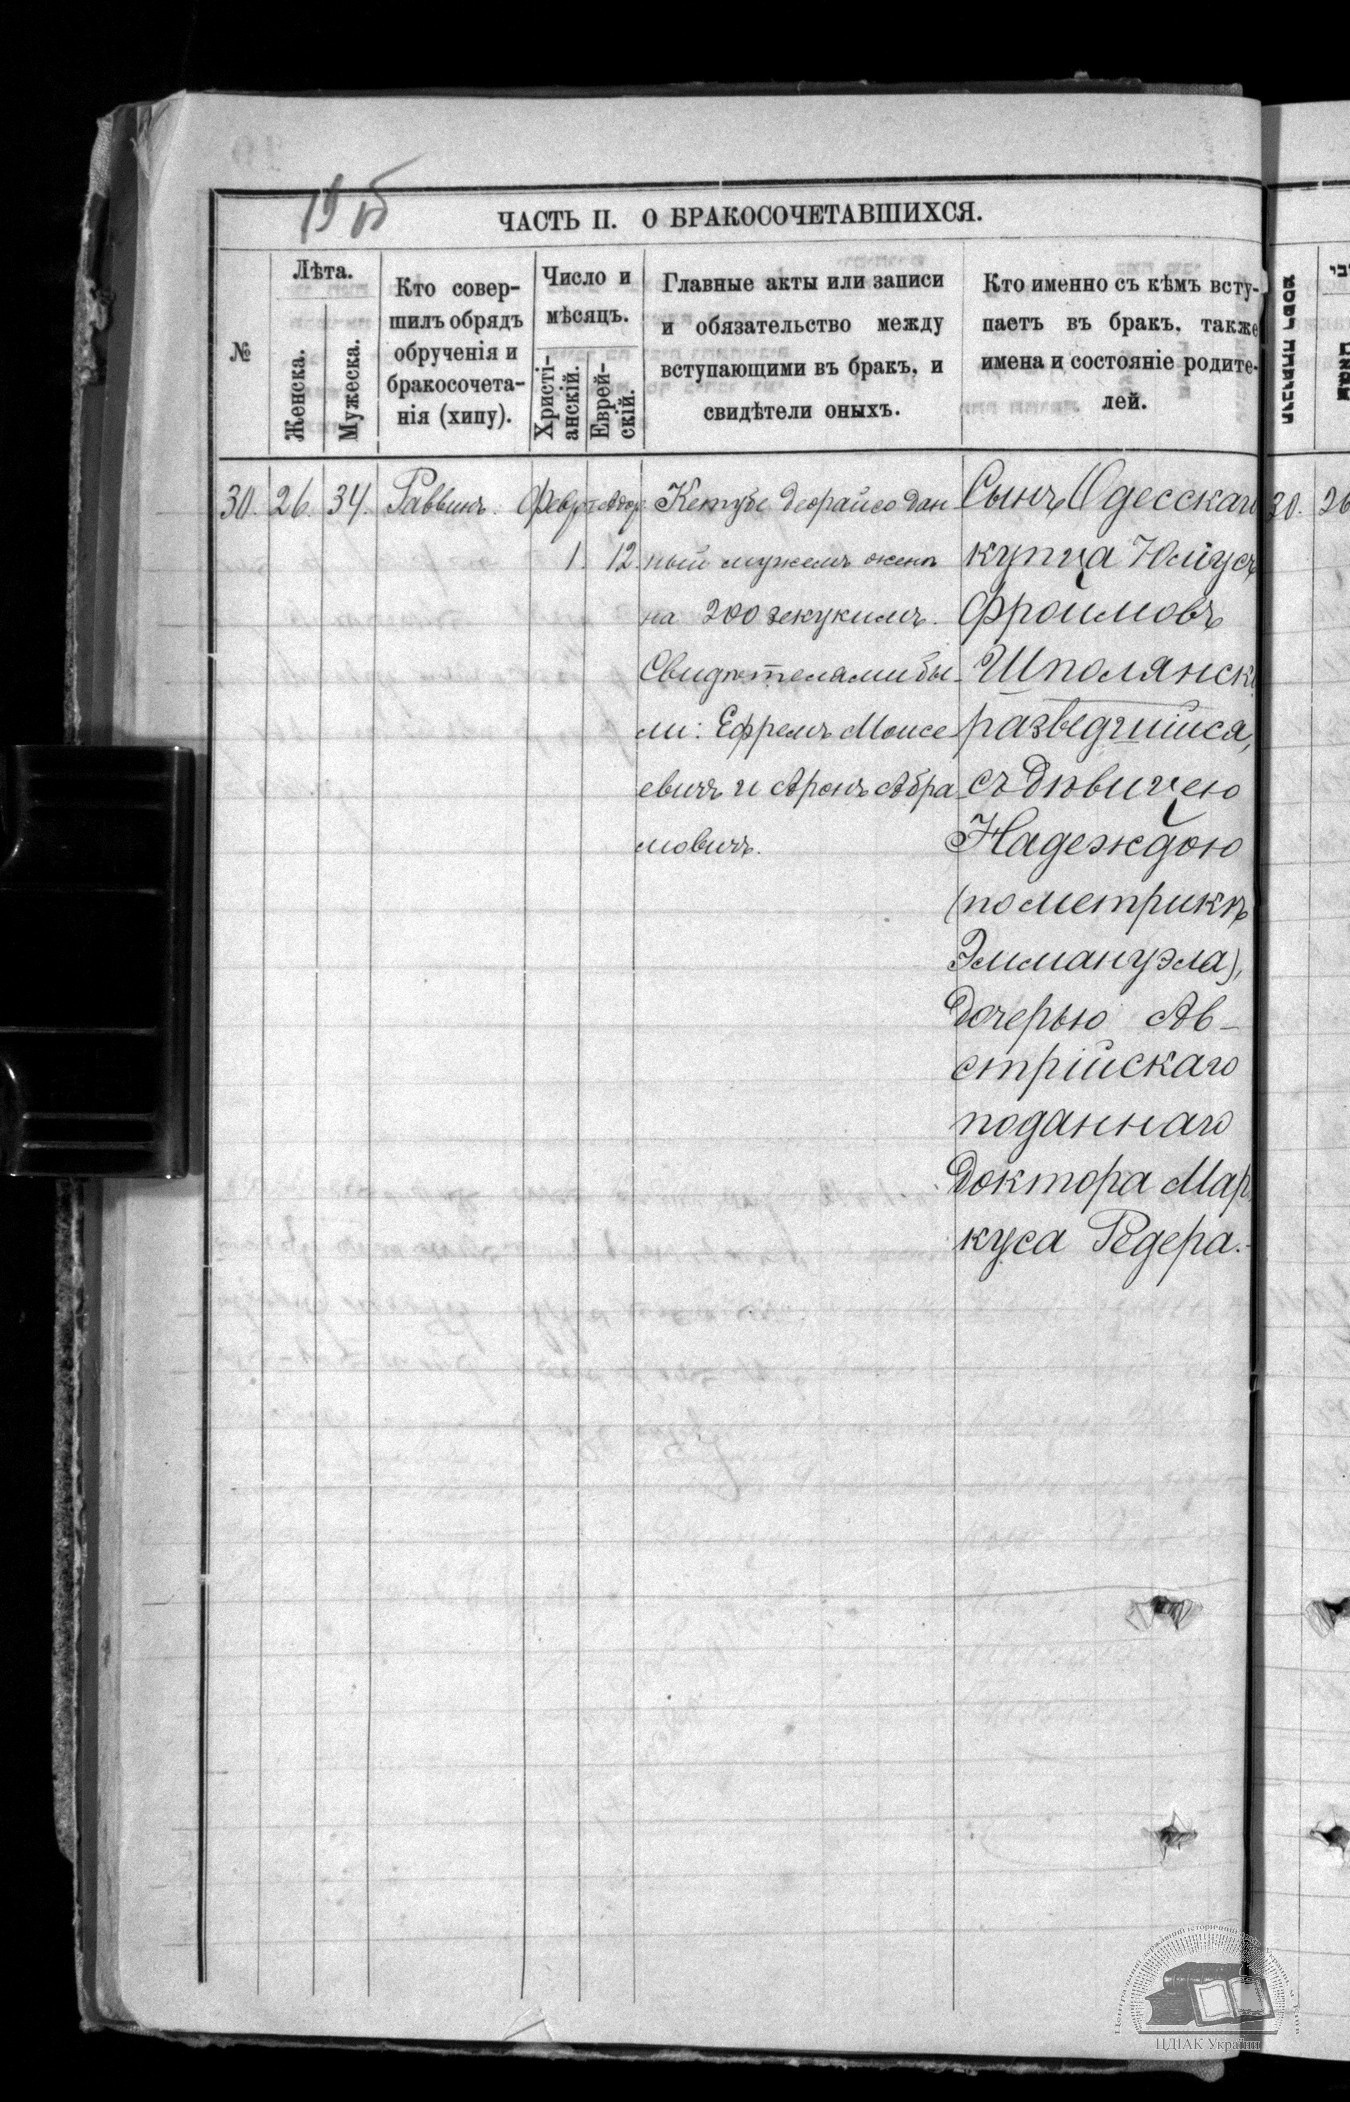 19
ЧАСТЬ II. О БРАКОСОЧЕТАВШИХСЯ.
№
Лѣта.
Женска.
Мужеска.
Кто совер-
шилъ обрядъ
обрученія и
бракосочета-
нія (хипу).
Число и
мѣсяцъ.
Христі-
анскій.
Еврей-
скій.
Главные акты или записи
и обязательство между
вступающими въ бракъ, и
свидѣтели оныхъ.
Кто именно съ кѣмъ всту-
паетъ въ бракъ, также
имена и состояніе родите-
лей.
30. 26. 34. Раввинъ.
1. 12
Кетубе деорайсо дан
ный мужемъ женѣ
на 200 зекукимъ.
Свидѣтелями бы-
ли: Ефремъ Моисе
евичъ и Аронъ Абра
мовичъ.
Сынъ Одесскаго
купца Юліусъ
Фроимовъ
Шполянск
разведшійся,
съ дѣвицею
Надеждою
(по метрикѣ
Эммануэла),
дочерью Ав-
стрійскаго
поданнаго
Доктора Мар
куса Редера.-
30. 26
ЦДІАК України